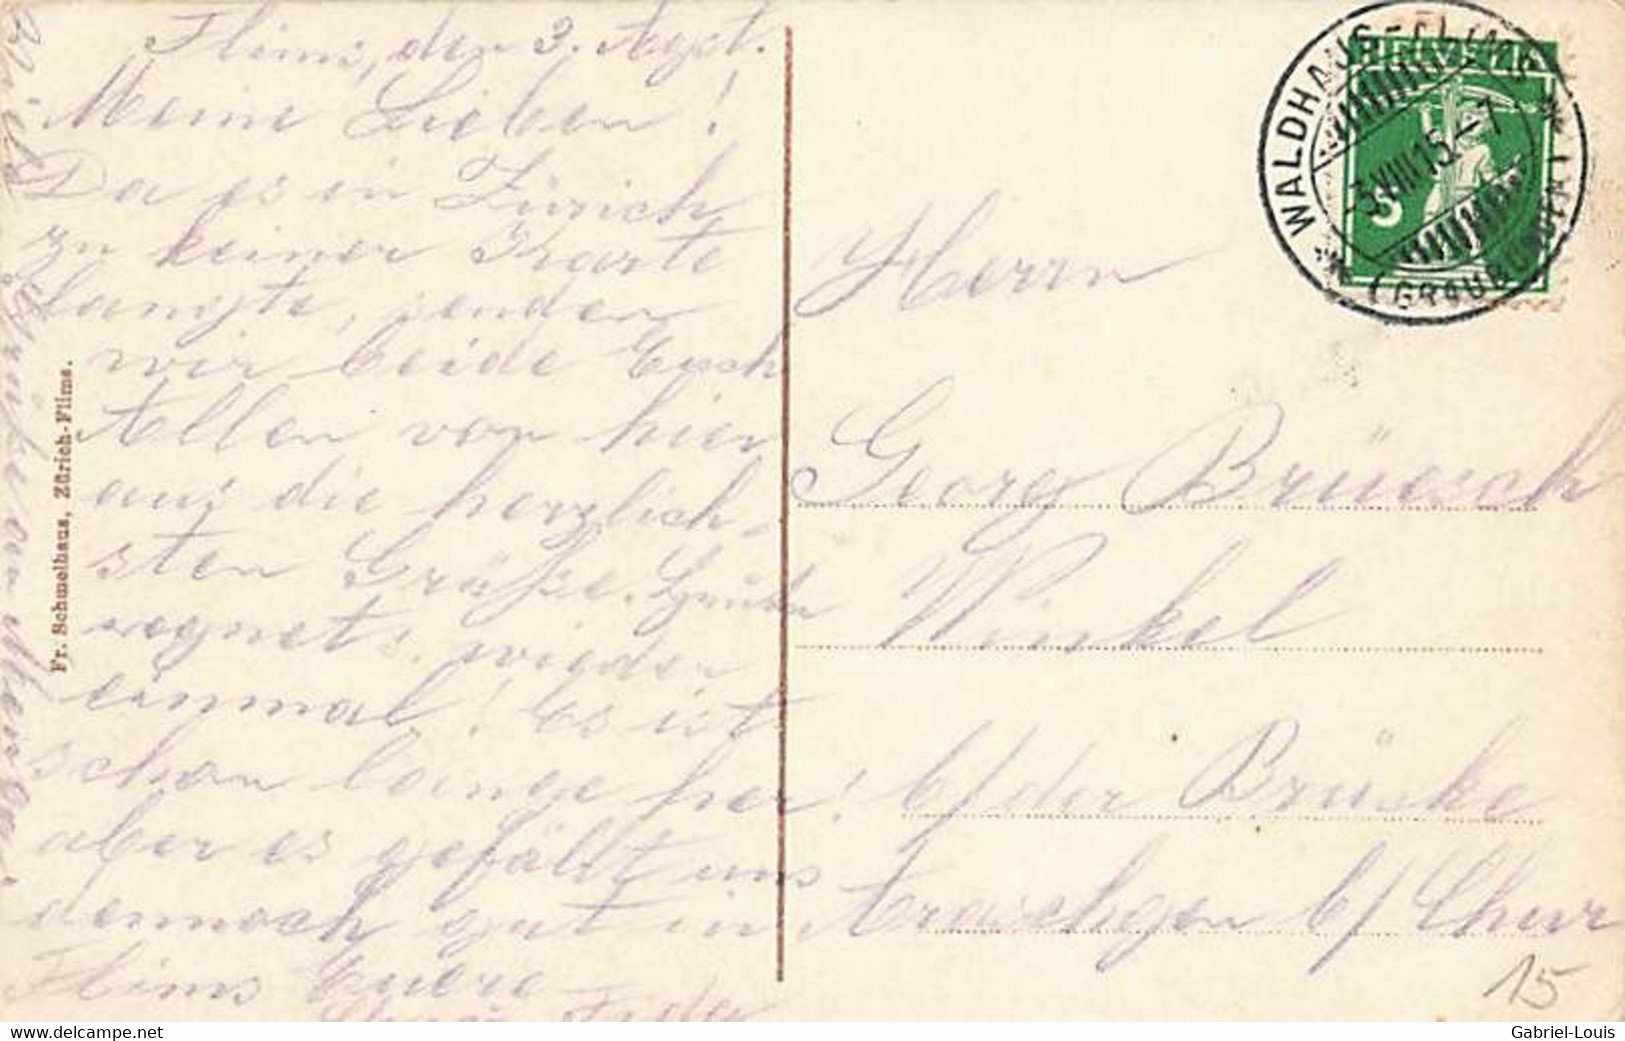 Flims, den 3. Agst.
Meine Lieben!
Da es in Zürich
zu keiner Karte
langte, senden
wir beide Euch
Allen von hier
aus die herzlich-
sten Grüße. Heute
regnets wieder
einmal! Es ist
schon lange her!
aber es gefällt uns
dennoch gut in
Flims Euere
Viele Grüße an
Fr. Schmelhaus, Zürich-Flims.
WALDHAUS-FLIMS
(GRAUBÜNDEN)
-3.VIII.15.-7
HELVETIA
5
Herrn
Georg Brüesch
Winkel
b/der Brücke
Araschgen b/Chur
15
www.delcampe.net
Gabriel-Louis